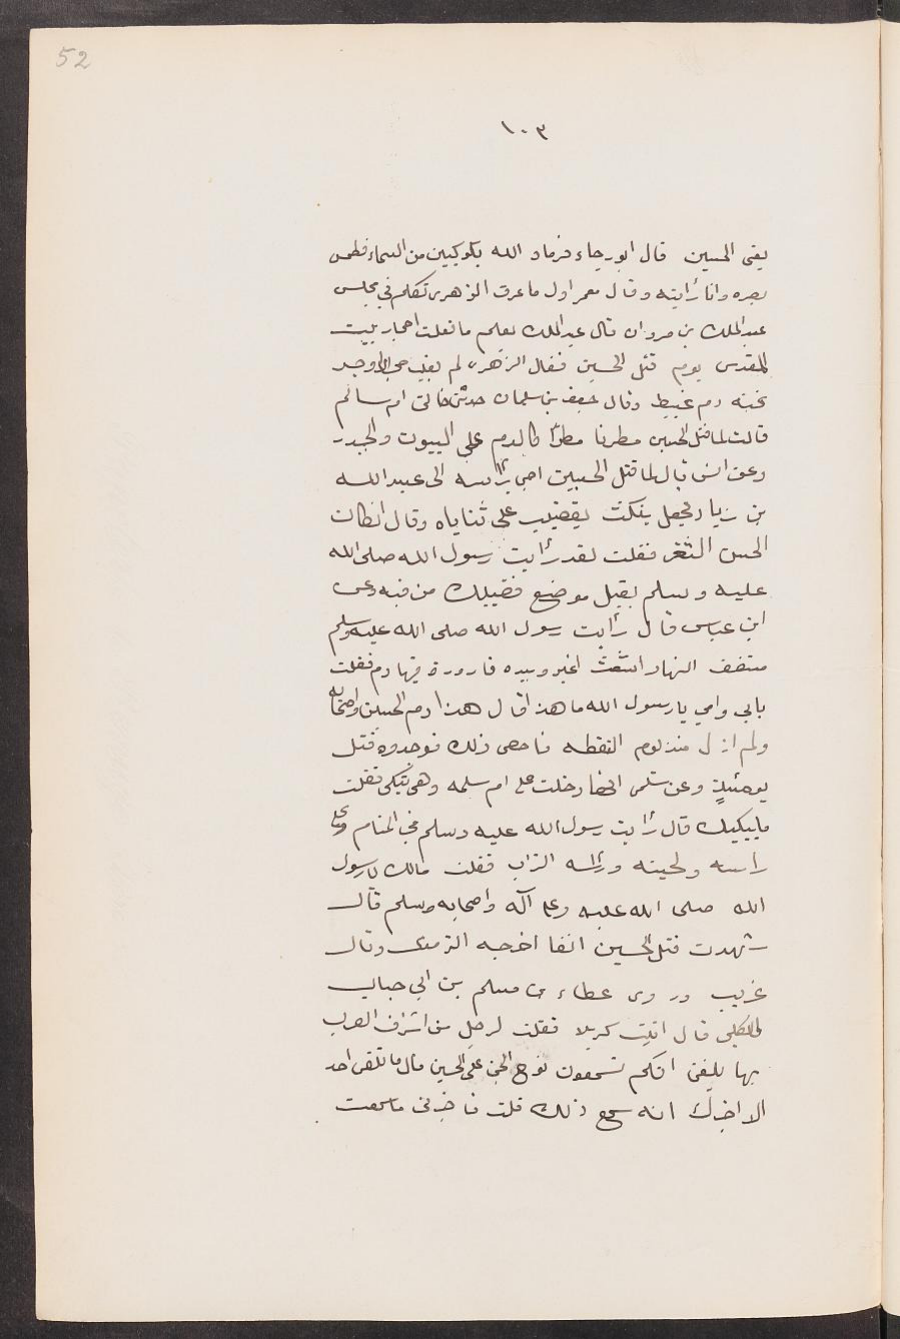 52
١٠٣
يعني الحسين قال ابو رجاء فرماه الله بكوكبين من السماء فطمس
بصره وانا رأيته وقال معمر اول ما عرف الزهري تكلم في مجلس
عبد الملك بن مروان قال عبد الملك يعلم ما فعلت احجار بيت
المقدس يوم قتل الحسين فقال الزهري لم يقلب حجر الا وجد
تحته دم عبيط وقال جعفر بن سلمان حدثتني خالتي ام سالم
قالت لما قتل الحسين مطرنا مطرًا كالدم على البيوت والجدر
وعن انس قال لما قتل الحسين اجي برأسه الى عبيد الله
بن زياد فجعل ينكث بقضيب على ثناياه وقال انكان
الحسن الثغر فقلت لقد رأيت رسول الله صلى الله
عليه وسلم يقبل موضع قضيبك من فيه وعن
ابن عباس قال رأيت رسول الله صلى الله عليه وسلم
منتصف النهار اشعث اغبر وبيده قارورة فيها دم فقلت
بابي وامي يا رسول الله ما هذا قال هذا دم الحسين واصحابه
ولم ازل منذ يوم التقطه فاحصى ذلك فوجدوه قتل
يومئيذٍ وعن سلمى انها دخلت على ام سلمه وهي تبكى فقلت
ما يبكيك قال رأيت رسول الله عليه وسلم في المنام وعلى
راسه ولحيته ورأسه التراب فقلت مالك يا رسول
الله صلى الله عليه وعلى آله واصحابه وسلم قال
شهدت قتل الحسين انفا اخرجه الترمذي وقال
غريب وروى عطاء بن مسلم بن ابي جباب
الكلبي قال اتيت كربلا فقلت لرجل من اشراف العرب
بها بلغني انكم تسمعون نوح الجن على الحسين قال ما تلقى احد
الا اخبرك انه سمع ذلك قلت فاخبرني ما سمعت